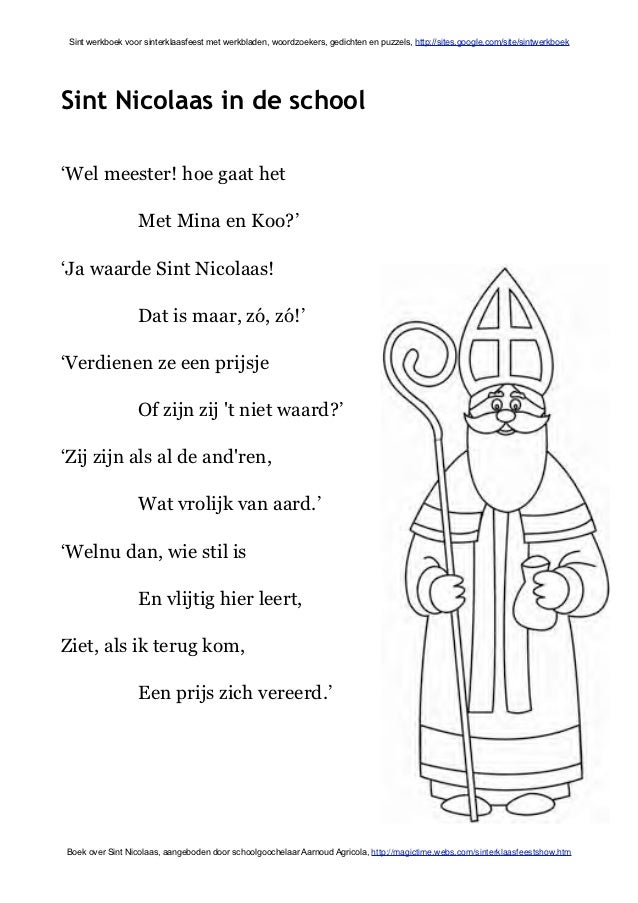 Sint werkboek voor sinterklaasfeest met werkbladen, woordzoekers, gedichten en puzzels, http://sites.google.com/site/sintwerkboek
Sint Nicolaas in de school
‘Wel meester! hoe gaat het
Met Mina en Koo?’
‘Ja waarde Sint Nicolaas!
Dat is maar, zó, zó!’
‘Verdienen ze een prijsje
Of zijn zij 't niet waard?’
‘Zij zijn als al de and'ren,
Wat vrolijk van aard.’
‘Welnu dan, wie stil is
En vlijtig hier leert,
Ziet, als ik terug kom,
Een prijs zich vereerd.’
Boek over Sint Nicolaas, aangeboden door schoolgoochelaar Aarnoud Agricola, http://magictime.webs.com/sinterklaasfeestshow.htm